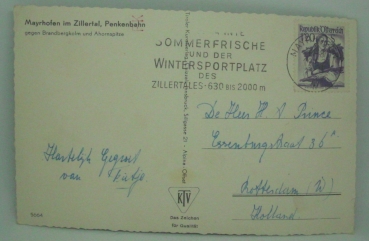 Mayrhofen im Zillertal, Penkenbahn
gegen Brandbergkolm und Ahornspitze
SOMMERFRISCHE
UND DER
WINTERSPORTPLATZ
DES
ZILLERTALES-630 BIS 2000 m
Republik Österreich
De Heer H V Prince
Essenburgstraat 36
Rotterdam (W)
Holland
Hartelijk Gegroet
van
KTV
Das Zeichen
für Qualität